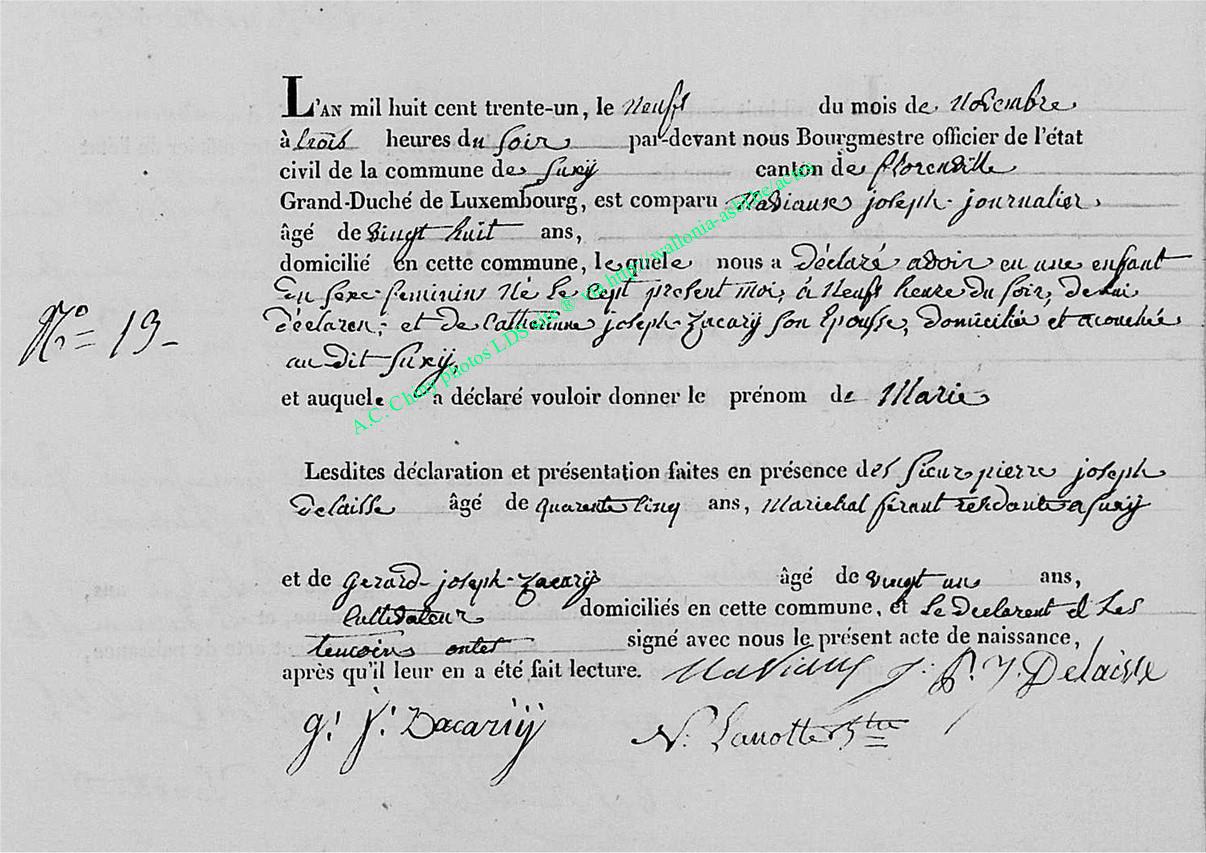 L'AN mil huit cent trente-un, le Neuf du mois de Novembre
à trois heures du soir par-devant nous Bourgmestre officier de l'état
civil de la commune de Suxÿ canton de florenville
Grand-Duché de Luxembourg, est comparu Naviaux joseph journalier,
âgé de vingt huit ans,
domicilié en cette commune, lequele nous a déclaré avoir eu une enfant
En sexe feminin Né le sept present moi, à Neuf heure du soir, de lui
N° = 13 -
déclaren; et de Catherinne joseph Zacarÿ son Epousse, domicilié et acouchée
au dit Suxÿ,
et auquele a déclaré vouloir donner le prénom de Marie
Lesdites déclaration et présentation faites en présence des sieur pierre joseph
Delaisse âgé de quarente cinq ans, Marichal féraut résidante a suxÿ
et de Gerard-joseph-Zacarÿ âgé de vingt un ans,
Cultivateur domiciliés en cette commune, et Le Declarent et Les
temoins ontes signé avec nous le présent acte de naissance,
après qu'il leur en a été fait lecture. Naviaux j: P. J. Delaisse
g: j: Zacariÿ N. Lanotte
A.C. Chiny photos LDS via http://wallonia-asbl.be/actes